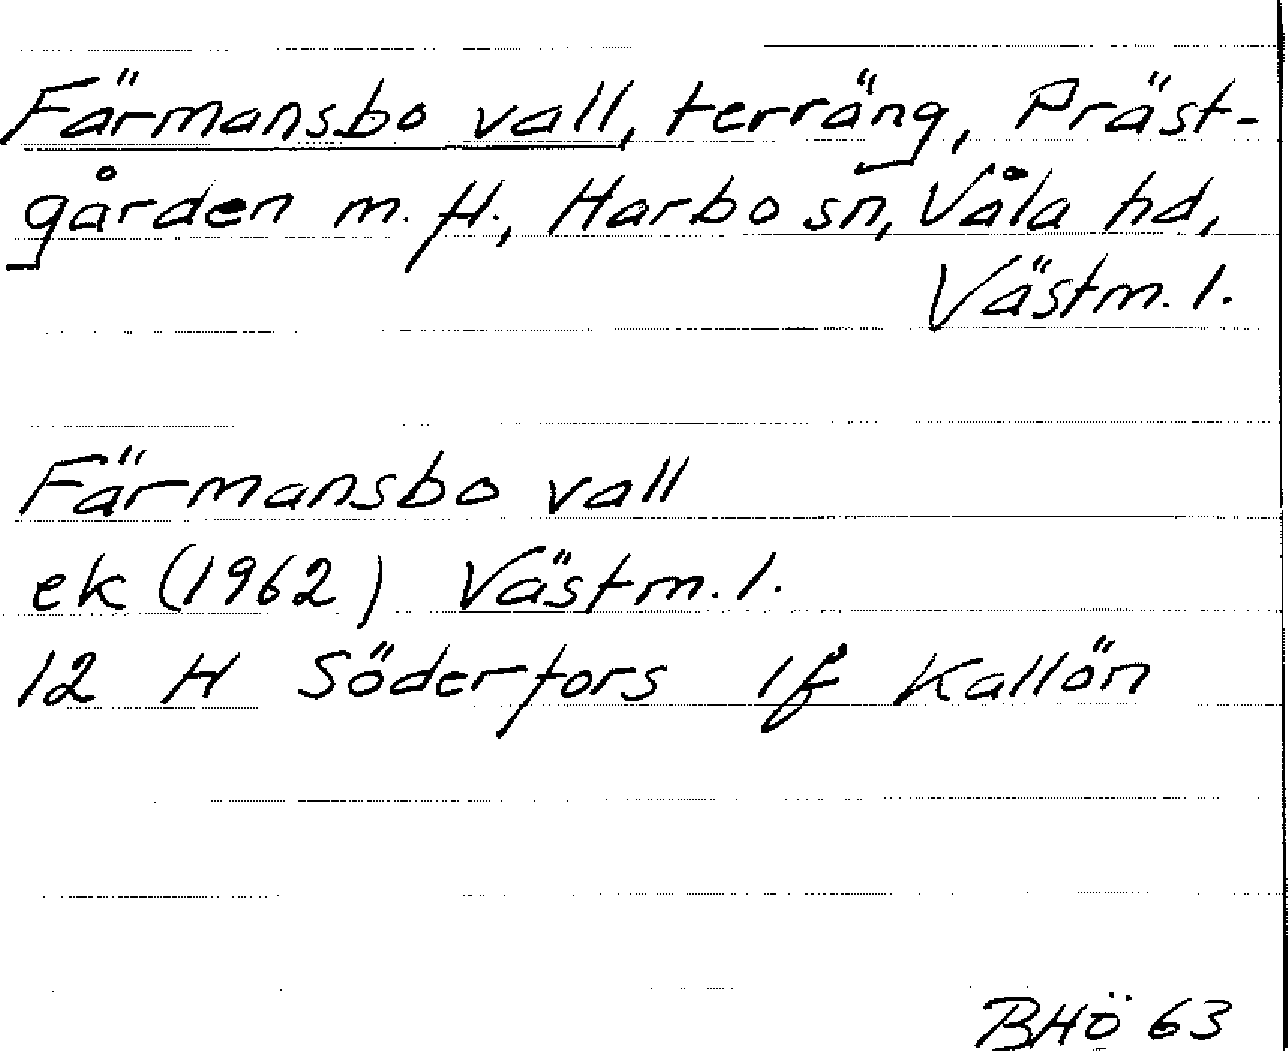 Färmansbo vall, terräng, Präst-
gården m. fl., Harbo sn, Våla hd,
Västm. l.
Färmansbo vall
ek (1962) Västm. l.
12 H Söderfors 1f Kallön
BHÖ 63